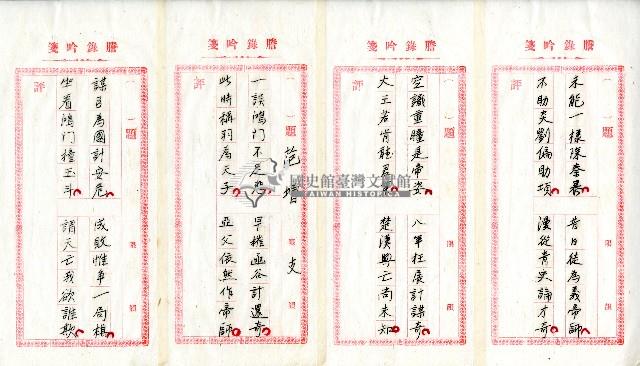 謄錄吟箋
（ ）題 限 韻
未能一樣除秦暴 昔日徒為義帝師
不助炎劉偏助項 漫從青史論才奇
謄錄吟箋
（ ）題 限 韻
空識重瞳是帝姿 八年枉展計謀奇
大王若肯聽君 楚漢興亡尚未知
評
謄錄吟箋
（ ）題 范增 限 支 韻
一誤鴻門不足悲 早摧函谷計還奇
此時稱羽為天子 亞父依然作帝師
評
謄錄吟箋
（ ）題 限 韻
謀臣為國計安危 成敗惟爭一局棋
坐看鴻門撞玉斗 謂天亡我欲誰欺
評
國史館臺灣文獻館
TAIWAN HISTORICA